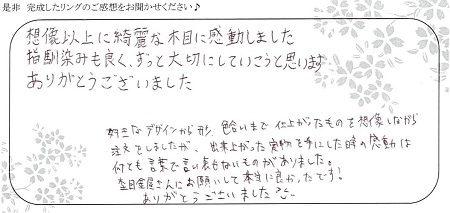 是非 完成したリングのご感想をお聞かせください♪
想像以上に綺麗な木目に感動しました
指馴染みも良く、ずっと大切にしていこうと思います
ありがとうございました
好きなデザインから形、色合いまで 仕上がったものを想像しながら
注文をしましたが、出来上がった実物を手にした時の感動は
何とも言葉で言い表せないものがありました。
杢目金屋さんにお願いして本当に良かったです!
ありがとうございました